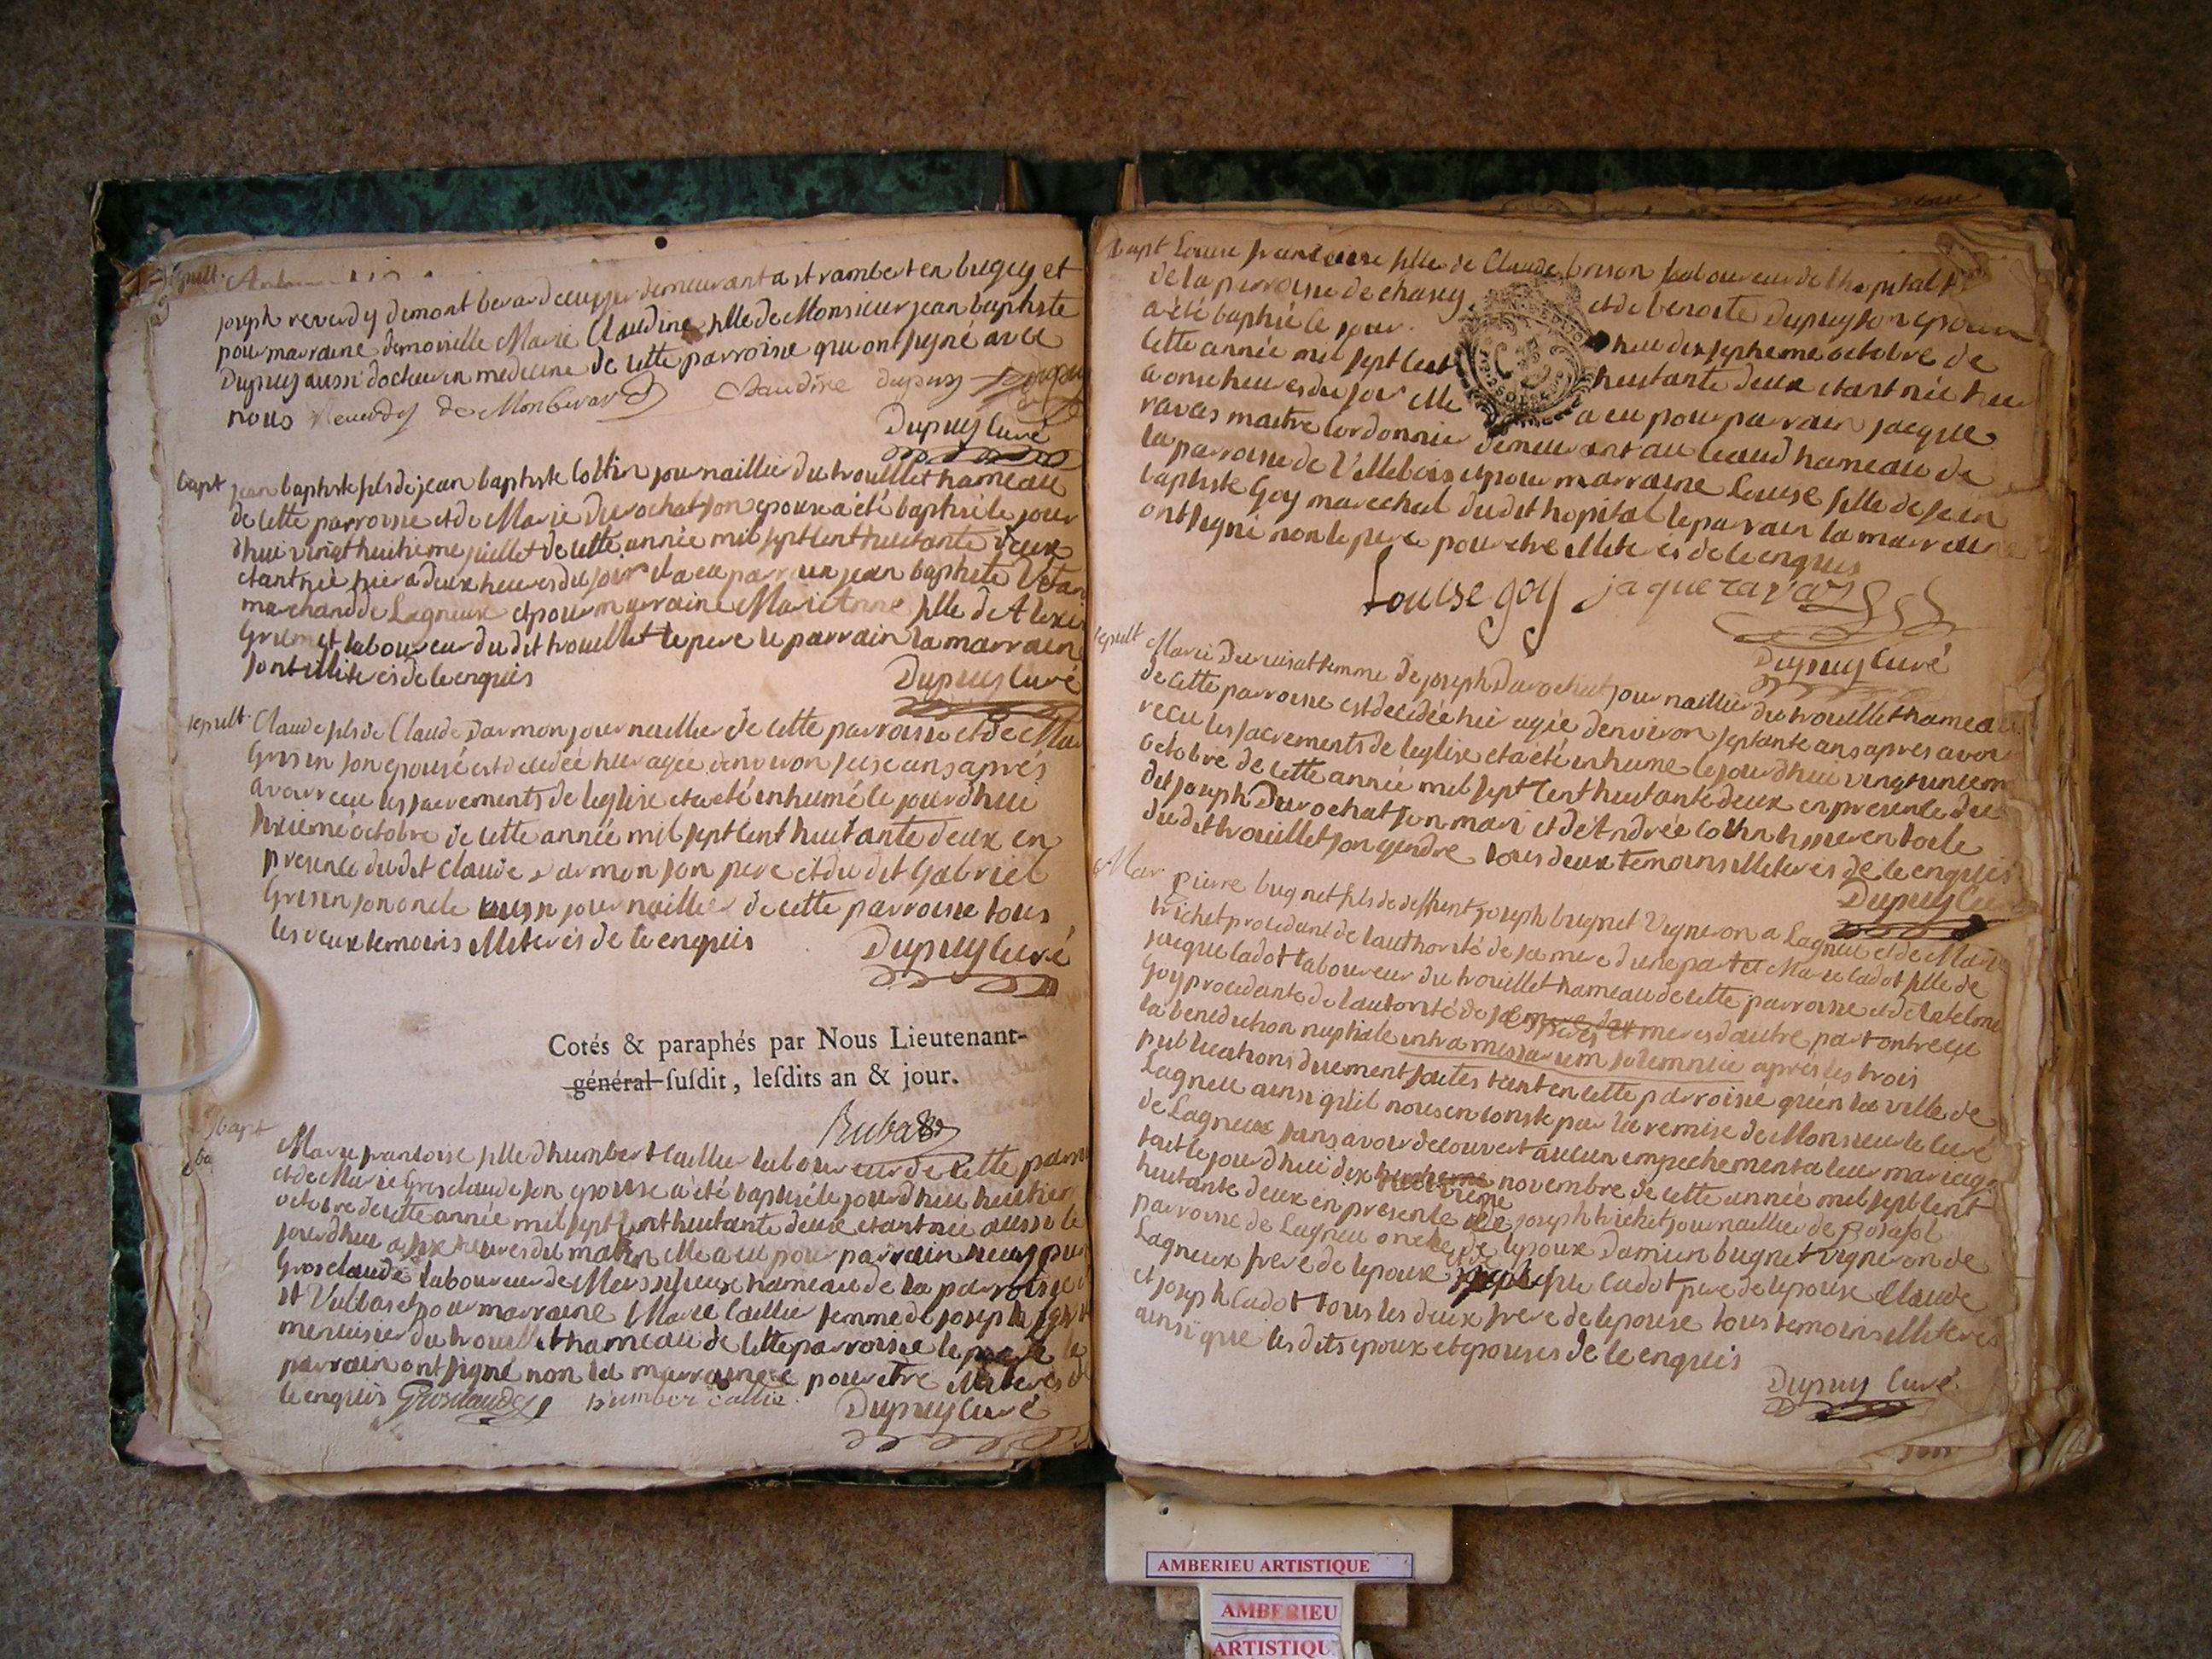 sepult.
joseph reverdy demontberard ecuyer demeurant a st rambert en bugey et
pour marraine demoiselle Marie Claudine fille de Monsieur jean baptiste
Dupuy aussi docteur en medecine de cette parroisse qui ont signé avec
nous Reverdy de Monberard Claudine dupuy
Dupuy Curé
bapt jean baptiste fils de jean baptiste Collin journaillier du trouillet hameau
de cette parroisse et de Marie Durochat son epouse a été baptisé le jour
dhui vingt huitieme juillet de cette année mil sept cent huitante deux
etant né hier a deux heures du soir il a eu parrain jean baptiste
marchand de Lagneux et pour marraine Marie Anne fille de Alexi
Grumet laboureur du dit trouillet le pere le parrain la marraine
sont illiterés de ce enquis
Dupuy Curé
sepult. Claude fils de Claude Darmon journaillier de cette parroisse et de
Grisin son epouse est decedée hier agée denviron seise ans apres
avoir recu les sacrements de leglise et a eté inhumé le jourdhui
sixieme octobre de cette année mil sept cent huitante deux en
presence du dit Claude Darmon son pere et du dit Gabriel
Grisin son oncle aussi journaillier de cette parroisse tous
les deux temoins illiterés de ce enquis
Dupuy Curé
Cotés & paraphés par Nous Lieutenant-
général ſuſdit, leſdits an & jour.
bapt
Marie francoise fille dhumbert Caillier laboureur de cette
et de Marie Grosclaude son epouse a été baptisé le jourdhui huitieme
octobre de cette année mil sept cent huitante deux etant née aussi le
jourdhui a six heures du matin elle a eu pour parrain
Grosclaude laboureur de Marssieux hameau de la parroisse
st Vulbas et pour marraine Marie Caillier femme de joseph
menuisier du trouillet hameau de cette parroisse le pere le
parrain ont signé non la marraine pour etre illiterés
ce enquis Grosclaude humber Callie
Dupuy Curé
bapt Louise francoise fille de Claude brison laboureur de lhopital
de la parroisse de chasey et de benoite Dupuy son epouse
a été baptisé le jour hui dixseptieme octobre de
Cette année mil sept Cent huitante deux etant née hier
a onse heures du soir elle a eu pour parrain jacque
ravas maitre Cordonnier demeurant au hameau de
la parroisse de Villebois et pour marraine Louise fille de jean
baptiste Goy marechal du dit hopital le parrain la marraine
ont signé non le pere pour etre illiterés de ce enquis
Louise goy jaque ravaz
Dupuy Curé
sepult Marie femme de joseph Durochat journaillier du trouillet hameau
de cette parroisse est decedée hier agée denviron septante ans apres avoir
recu les sacrements de leglise et a été inhume le jourdhui vingt unieme
octobre de cette année mil sept cent huitante deux en presence du
dit joseph Durochat son mari et de Andrée Collin tisser en toile
du dit trouillet son gendre tous deux temoins illiterés de ce enquis
Dupuy Curé
Mar. pierre bugnet fils de deffunt joseph bugnet Vigneron a Lagnieu et de Marie
trichet procedant de lauthorité de sa mere dune part et Marie Cadot fille de
jacque Cadot laboureur du trouillet hameau de cette parroisse et de
Goy procedante de lautorité de ses pere et meres dautre part ont reçu
la benediction nuptiale intra missarum solemnia après les trois
publications duement faites tant en cette parroisse quen la ville de
Lagneu ainsi quil nous en conste par la remise de Monsieur le curé
de Lagneux sans avoir decouvert aucun empechement a leur mariage
fait le jourdhui dix huitieme novembre de cette année mil sept cent
huitante deux en presence de joseph trichet journaillier de Posafol
parroisse de Lagnieu oncle de lepoux Damien bugnet Vigneron de
Lagneux frere de lepoux Cadot pere de lepouse Claude
et joseph Cadot tous les deux frere de lepouse tous temoins illiterés
ainsi que les dits epoux et epouses de ce enquis
Dupuy Curé
AMBERIEU ARTISTIQUE
AMBERIEU
ARTISTIQU